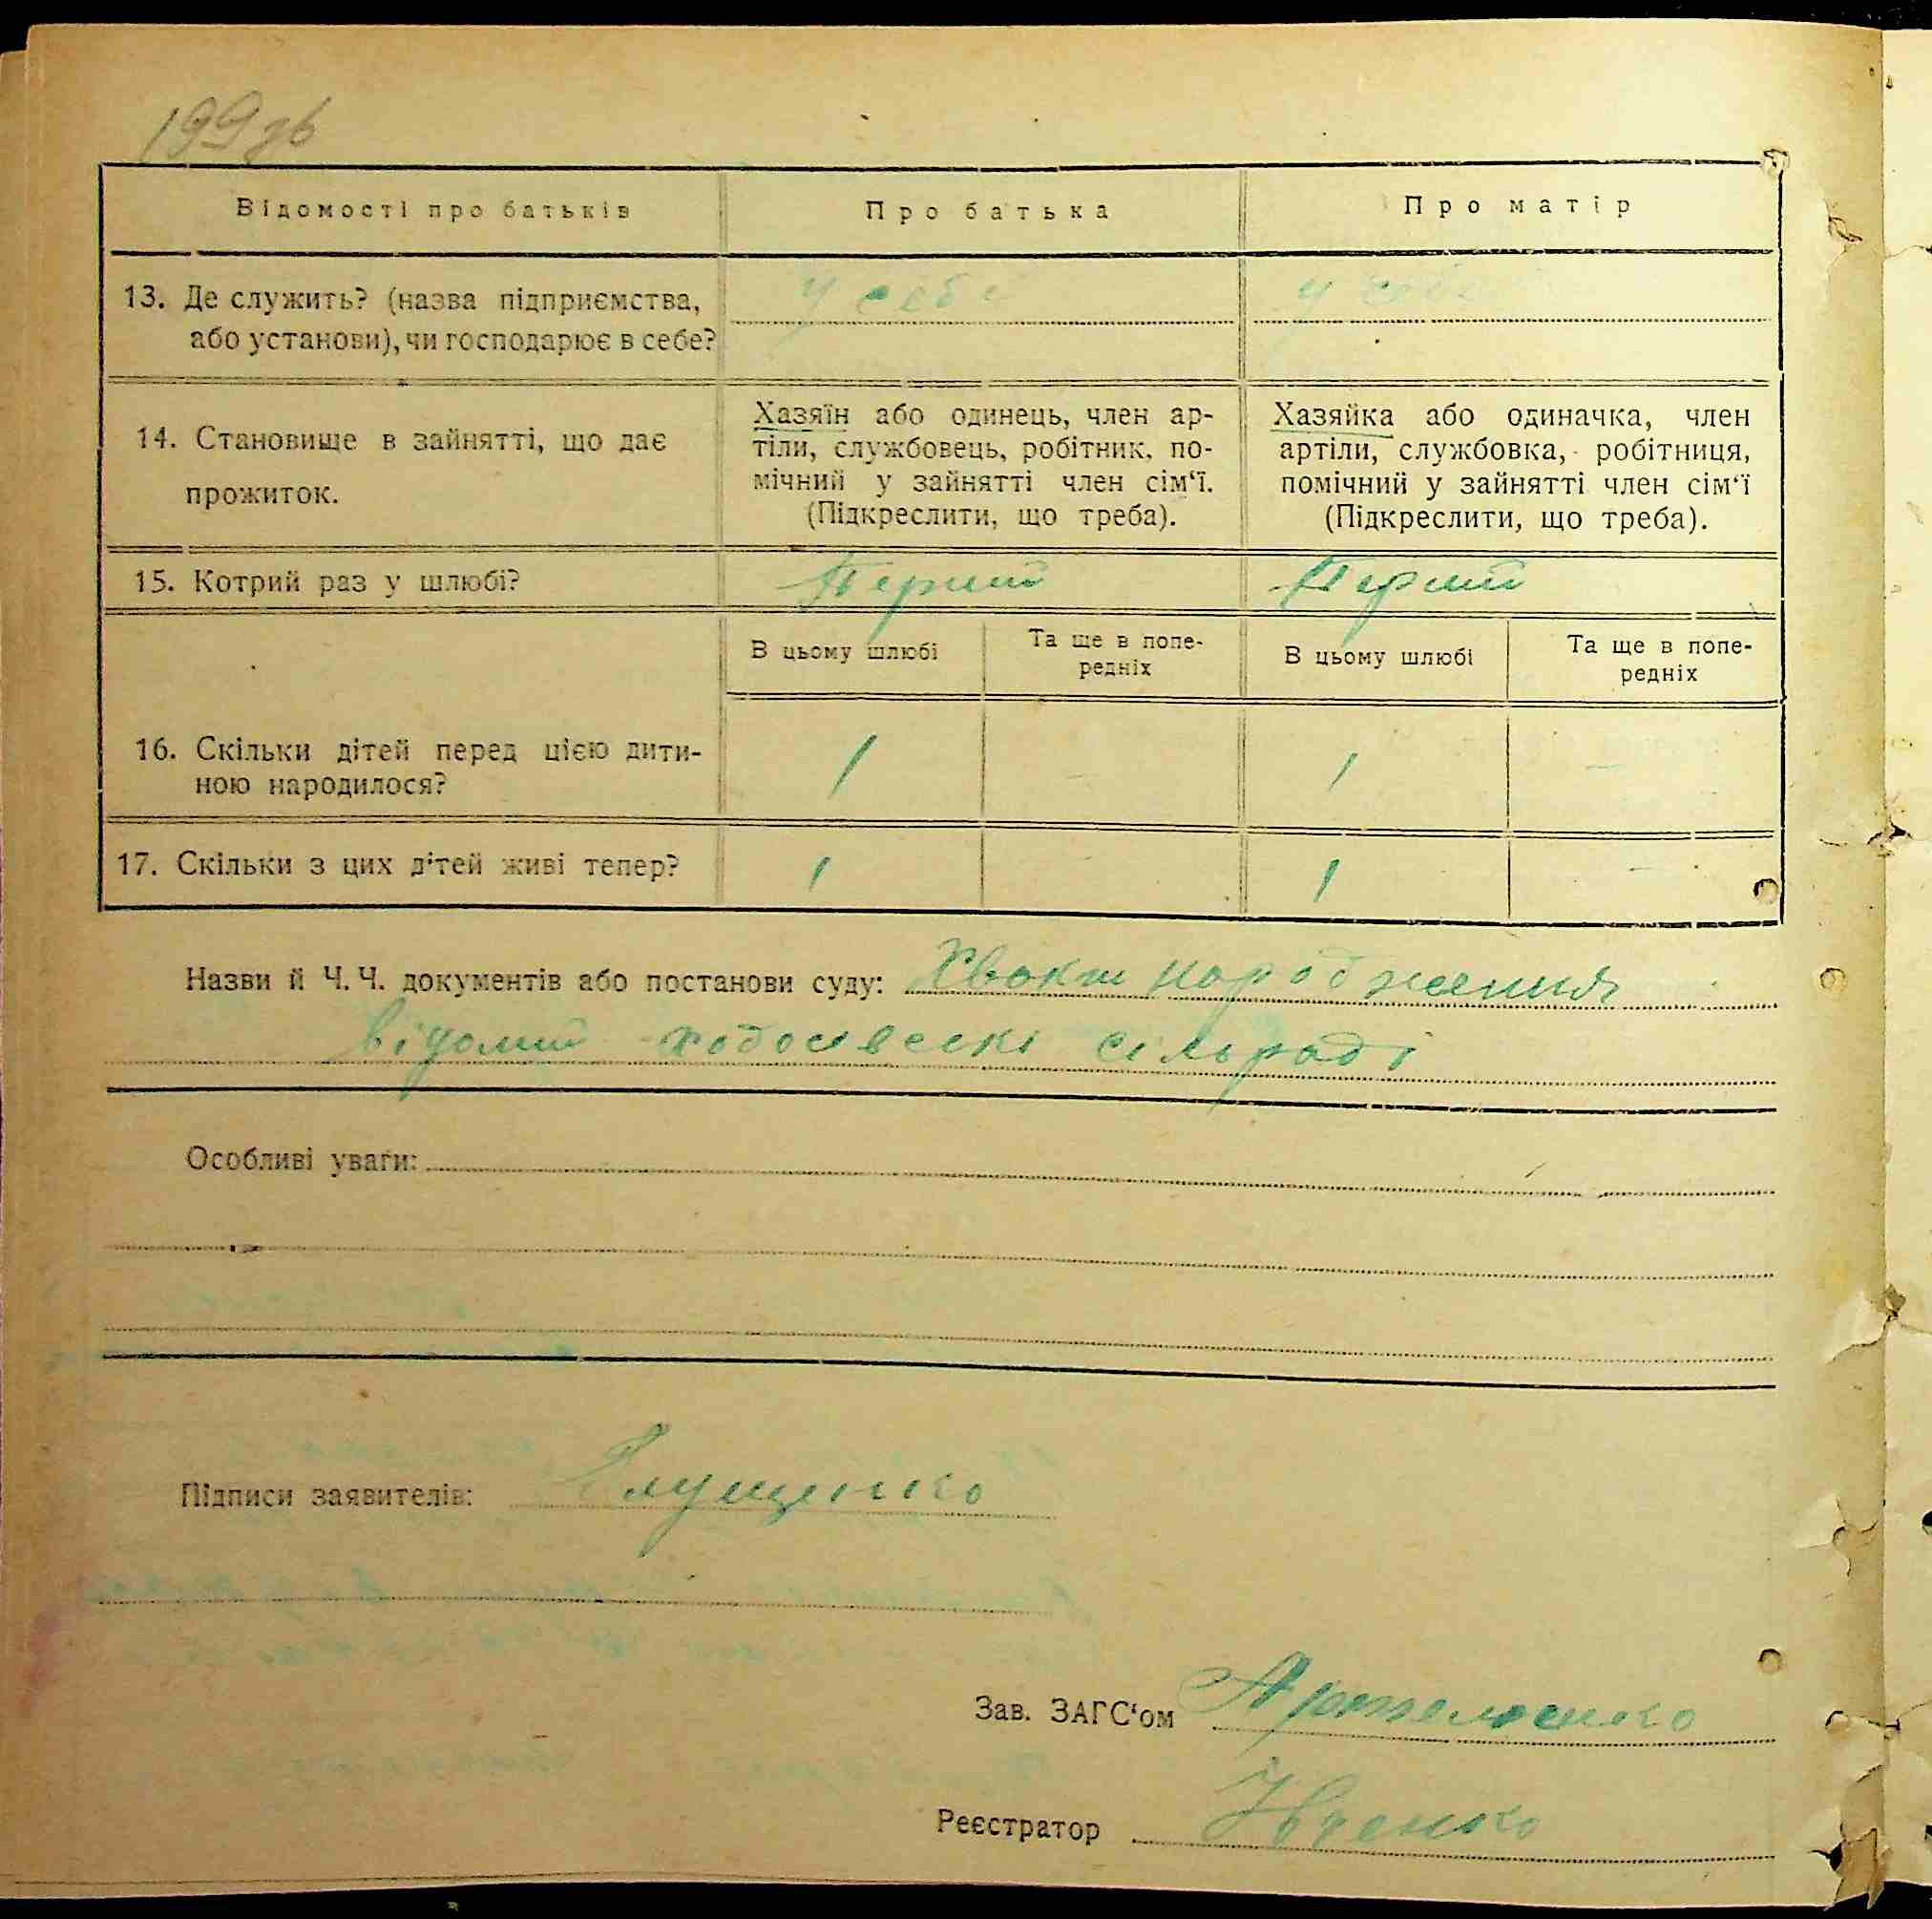 199зв
Відомості про батьків
Про батька
Про матір
13. Де служить? (назва підприємства,
або установи), чи господарює в себе?
у себе
у себе
14. Становище в зайнятті, що дає
прожиток.
Хазяїн або одинець, член ар-
тіли, службовець, робітник, по-
мічний у зайнятті член сім‘ї.
(Підкреслити, що треба).
Хазяйка або одиначка, член
артіли, службовка, робітниця,
помічний у зайнятті член сім‘ї
(Підкреслити, що треба).
15. Котрий раз у шлюбі?
Перший
Перший
В цьому шлюбі
Та ще в попе-
редніх
В цьому шлюбі
Та ще в попе-
редніх
16. Скільки дітей перед цією дити-
ною народилося?
1
1
—
17. Скільки з цих дітей живі тепер?
1
1
—
Назви й Ч. Ч. документів або постанови суду: Хвакт народження
відомий сільраді
Особливі уваги:
Підписи заявителів: Глущенко
Зав. ЗАГС‘ом
Реєстратор